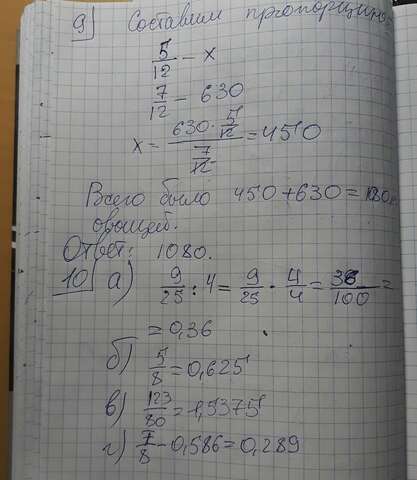 9) Составим пропорцию:
5/12 - x
7/12 - 630
x = (630 · 5/12) / (7/12) = 450
Всего было 450 + 630 = 1080
овощей.
Ответ: 1080.
10 а) 9/25 : 4 = 9/25 · 4/4 = 36/100 =
= 0,36
б) 5/8 = 0,625
в) 123/80 = 1,5375
г) 7/8 - 0,586 = 0,289